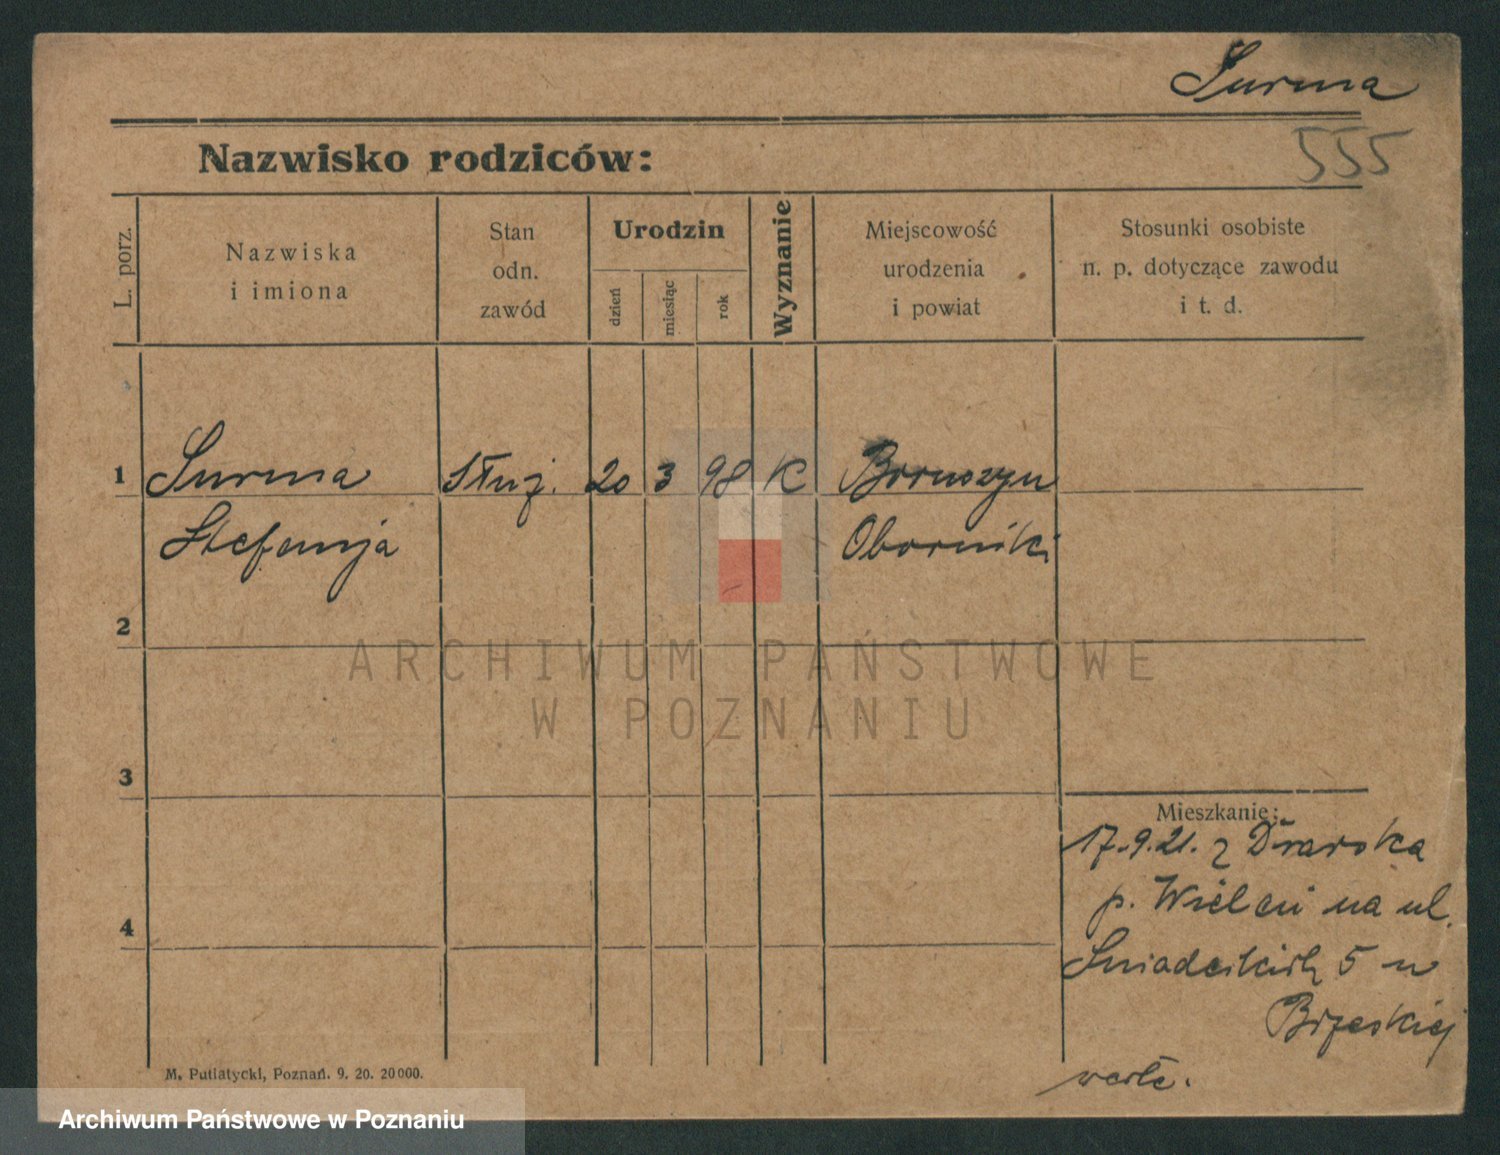 Surma
555
Nazwisko rodziców:
L. porz.
Nazwiska
i imiona
Stan
odn.
zawód
Urodzin
dzień
miesiąc
rok
Wyznanie
Miejscowość
urodzenia
i powiat
Stosunki osobiste
n. p. dotyczące zawodu
i t. d.
1 Surma Służ. 20 3 98 K Boruszyn
Stefanja Oborniki
2
3
4
ARCHIWUM PAŃSTWOWE
W POZNANIU
Mieszkanie:
17.9.21. z Drawska
p. Wieleń na ul.
Śniadeckich 5 u
Brzeskiej
M. Putiatycki, Poznań. 9. 20. 20000.
Archiwum Państwowe w Poznaniu